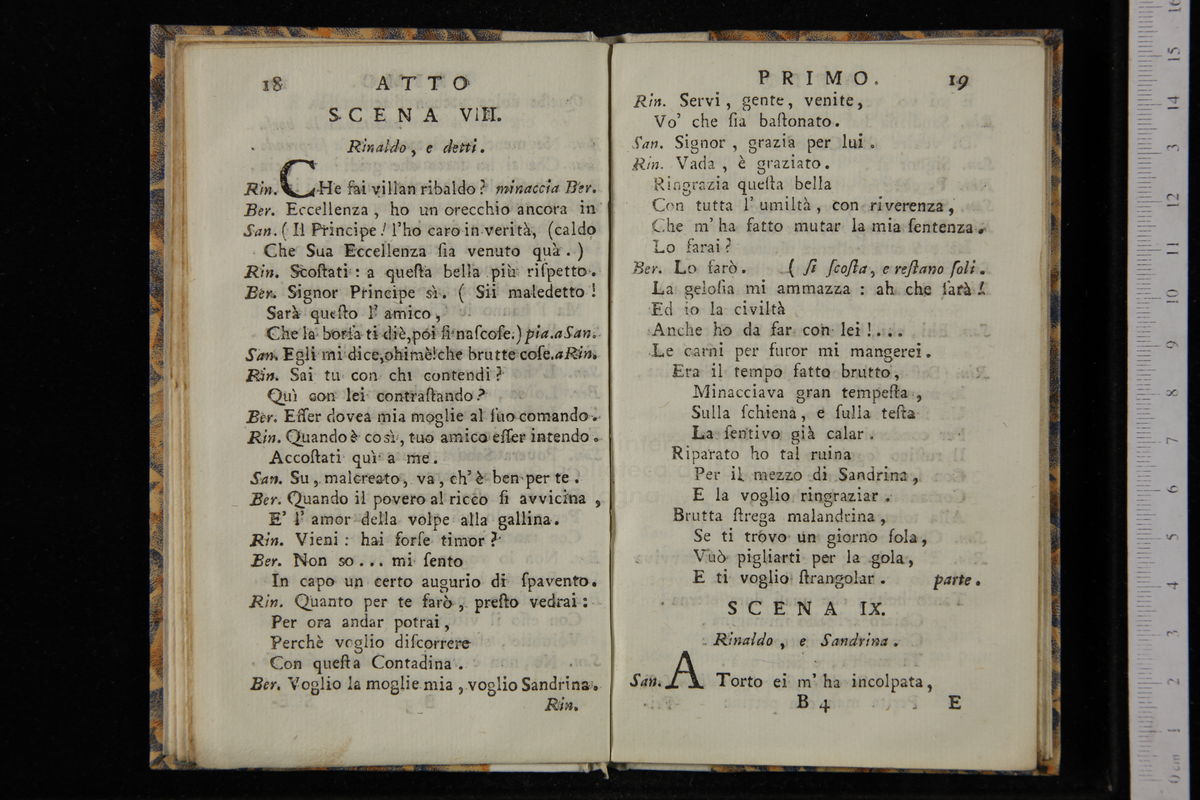 18 ATTO
SCENA VIII.
Rinaldo, e detti.
Rin. CHe fai villan ribaldo? minaccia Ber.
Ber. Eccellenza, ho un orecchio ancora in
San. (Il Principe! l'ho caro in verità, (caldo
Che Sua Eccellenza ſia venuto quà.)
Rin. Scoſtati: a queſta bella più riſpetto.
Ber. Signor Principe sì. (Sii maledetto!
Sarà queſto l' amico,
Che la borſa ti diè, poi ſi naſcoſe.) pia. a San.
San. Egli mi dice, ohimè! che brutte coſe. a Rin.
Rin. Sai tu con chi contendi?
Quì con lei contraſtando?
Ber. Eſſer dovea mia moglie al ſuo comando.
Rin. Quando è così, tuo amico eſſer intendo.
Accoſtati quì a me.
San. Su, malcreato, va, ch' è ben per te.
Ber. Quando il povero al ricco ſi avvicina,
E' l' amor della volpe alla gallina.
Rin. Vieni: hai forſe timor?
Ber. Non so... mi ſento
In capo un certo augurio di ſpavento.
Rin. Quanto per te farò, preſto vedrai:
Per ora andar potrai,
Perchè voglio diſcorrere
Con queſta Contadina.
Ber. Voglio la moglie mia, voglio Sandrina.
Rin.
PRIMO. 19
Rin. Servi, gente, venite,
Vo' che ſia baſtonato.
San. Signor, grazia per lui.
Rin. Vada, è graziato.
Ringrazia queſta bella
Con tutta l' umiltà, con riverenza,
Che m' ha fatto mutar la mia ſentenza.
Lo farai?
Ber. Lo farò. (ſi ſcoſta, e reſtano ſoli.
La geloſia mi ammazza: ah che ſarà!
Ed io la civiltà
Anche ho da far con lei!...
Le carni per furor mi mangerei.
Era il tempo fatto brutto,
Minacciava gran tempeſta,
Sulla ſchiena, e ſulla teſta
La ſentivo già calar.
Riparato ho tal ruina
Per il mezzo di Sandrina,
E la voglio ringraziar.
Brutta ſtrega malandrina,
Se ti trovo un giorno ſola,
Vuò pigliarti per la gola,
E ti voglio ſtrangolar. parte.
SCENA IX.
Rinaldo, e Sandrina.
San. A Torto ei m' ha incolpata,
B 4 E